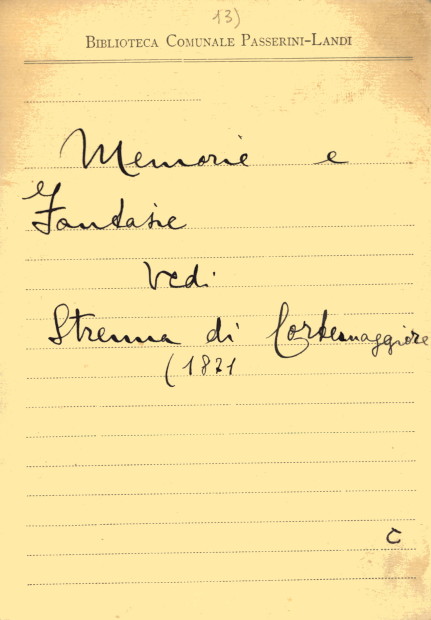 13)
BIBLIOTECA COMUNALE PASSERINI-LANDI
Memorie e
e
Fantasie
Vedi
Strenna di Cortemaggiore
(1821
C